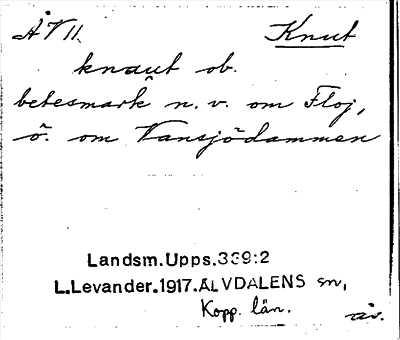 ÅVII. Knut
knaut ob.
betesmark n. v. om Floj,
ö. om Vansjödammen
Landsm.Upps.339:2
L.Levander.1917.ÄLVDALENS sn,
Kopp. län.
äv.